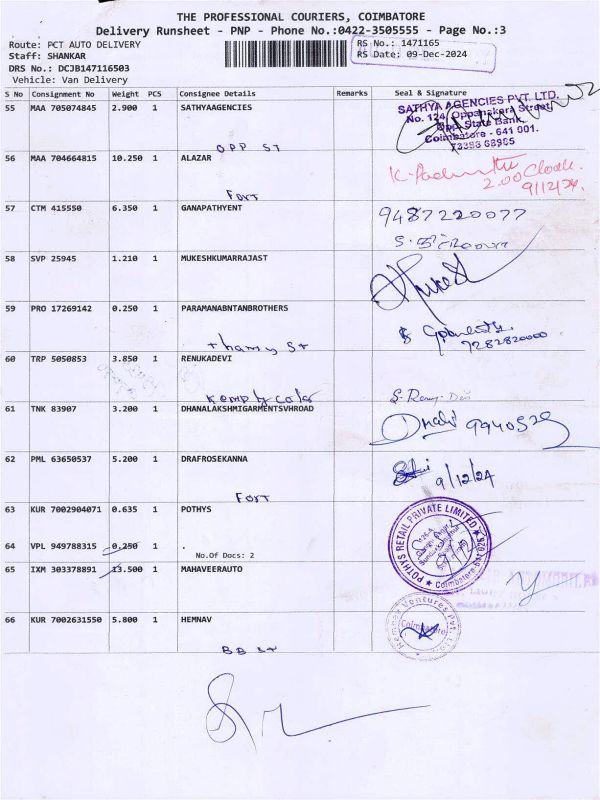 THE PROFESSIONAL COURIERS, COIMBATORE
Delivery Runsheet - PNP - Phone No.:0422-3505555 - Page No.:3
Route: PCT AUTO DELIVERY
Staff: SHANKAR
DRS No.: DCJB147116503
Vehicle: Van Delivery
RS No.: 1471165
RS Date: 09-Dec-2024
S No Consignment No Weight PCS Consignee Details Remarks Seal & Signature
55 MAA 705074845 2.900 1 SATHYAAGENCIES
OPP ST
SATHYA AGENCIES PVT. LTD.
No. 124, Oppanakara Street,
Opp State Bank,
Coimbatore - 641 001.
73393 68965
56 MAA 704664815 10.250 1 ALAZAR
Fort
2.00 Clock
9/12/24
57 CTM 415550 6.350 1 GANAPATHYENT
9487220077
58 SVP 25945 1.210 1 MUKESHKUMARRAJAST
59 PRO 17269142 0.250 1 PARAMANABNTANBROTHERS
7282820000
60 TRP 5050853 3.850 1 RENUKADEVI
61 TNK 83907 3.200 1 DHANALAKSHMIGARMENTSVHROAD
9940529
62 PML 63650537 5.200 1 DRAFROSEKANNA
Fort
9/12/24
63 KUR 7002904071 0.635 1 POTHYS
POTHYS RETAIL PRIVATE LIMITED
Coimbatore
64 VPL 949788315 0.250 1 .
No.Of Docs: 2
65 IXM 303378891 13.500 1 MAHAVEERAUTO
66 KUR 7002631550 5.800 1 HEMNAV
BB St
Hemnav Ventures Pvt. Ltd.
Coimbatore